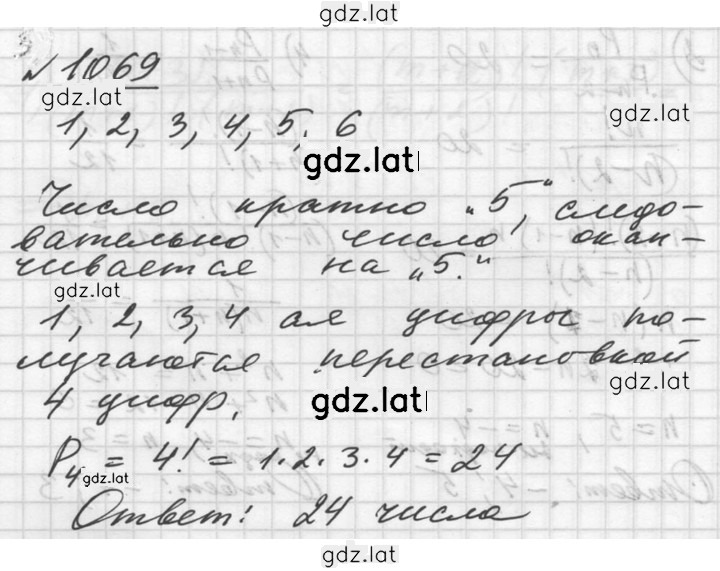 gdz.lat
№ 1069
gdz.lat
gdz.lat
1, 2, 3, 4, 5, 6
gdz.lat
Число кратно „5", следо-
вательно число окан-
чивается на „5."
gdz.lat
1, 2, 3, 4 ал цифры по-
лучаются перестановкой
gdz.lat
4 цифр.
gdz.lat
P₄ = 4! = 1·2·3·4 = 24
gdz.lat
Ответ: 24 числа
gdz.lat